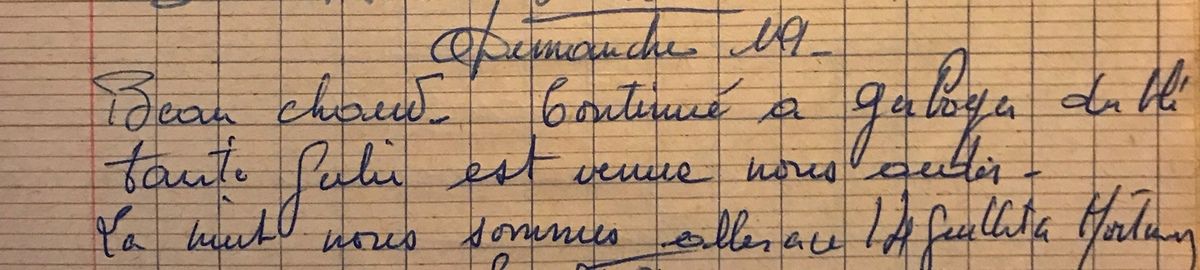 Dimanche 19-
Beau chaud- Continué a du blé
tante Julie est venue nous aider-
La nuit nous sommes aller au 14 Juillet a